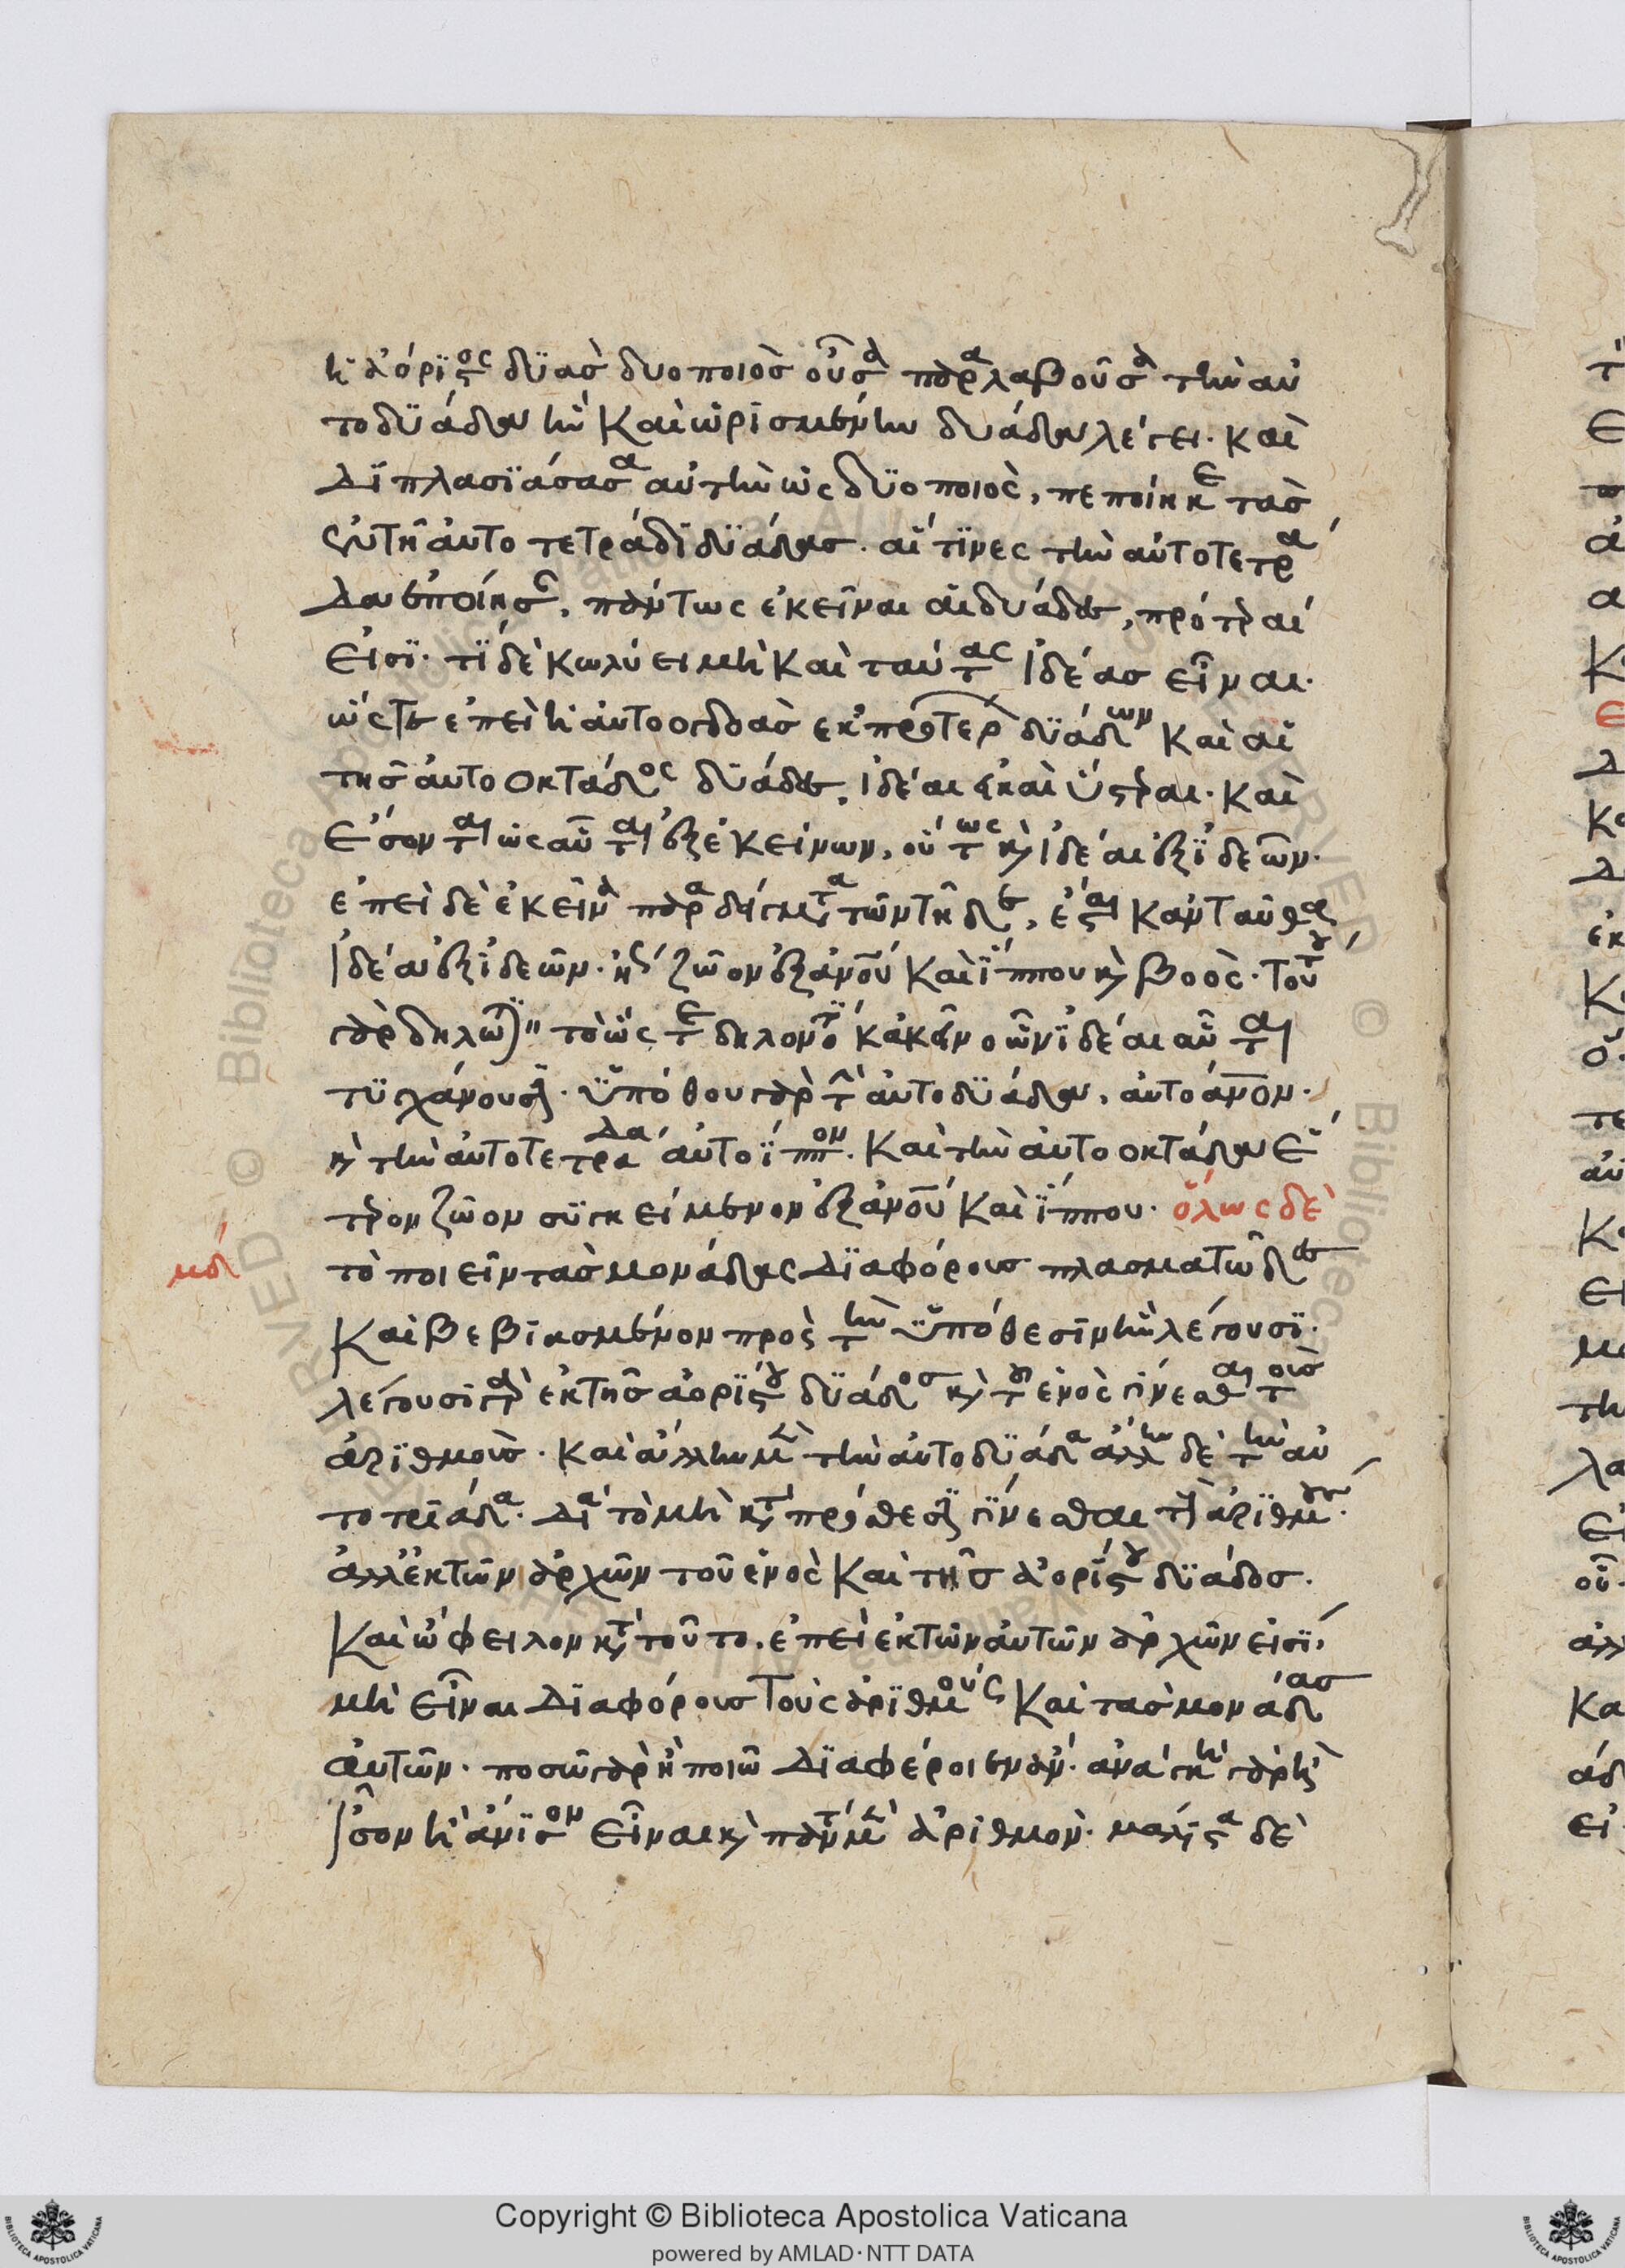 ἡ ἀόριστος δυὰς δυοποιὸς οὖσα παραλαβοῦσα τὴν αὐ
τοδυάδα ἣν καὶ ὡρισμένην δυάδα λέγει. καὶ
διπλασιάσασα αὐτὴν ὡς δυοποιὸς, πεποίηκε τὰς
ἐν τῇ αὐτοτετράδι δυάδας. αἵτινες τὴν αὐτοτετρά
δα ἐποίησαν. πάντως ἐκεῖναι αἱ δυάδες, πρότεραί
εἰσι. τί δὲ κωλύει μὴ καὶ ταύτας ἰδέας εἶναι.
ὥστε ἐπεὶ ἡ αὐτοογδοὰς ἐκ προτέρων δυάδων καὶ αἱ
τῆς αὐτοοκτάδος δυάδες, ἰδέαι εἰ καὶ ὕστεραι. καὶ
ἔσονται ὡς αὗται ἐξ ἐκείνων, οὕτως καὶ ἰδέαι ἐξ ἰδεῶν.
ἐπεὶ δὲ ἐκεῖνα παραδείγματα τῶν τῇδε, ἔσται κἀνταῦθα
ἰδέα ἐξ ἰδεῶν. καὶ ζῶον ἐξ ἀνου καὶ ἵππου καὶ βοός. τοῦτο
γὰρ δηλοῖ τὸ ὥστε δηλονότι κἀκεῖνο ὧν ἰδέαι αὗται
τυγχάνουσι. ὑπόθου γὰρ τὴν αὐτοδυάδα, αὐτοάνον.
καὶ τὴν αὐτοτετράδα αὐτοίππον. καὶ τὴν αὐτοοκτάδα ἕ
τερον ζῶον συγκείμενον ἐξ ἀνου καὶ ἵππου. ὅλως δὲ
μδ τὸ ποιεῖν τὰς μονάδας διαφόρους πλασματῶδες
καὶ βεβιασμένον πρὸς τὴν ὑπόθεσιν ἣν λέγουσι.
λέγουσι γὰρ ἐκ τῆς ἀορίστου δυάδος καὶ τοῦ ἑνὸς γίνεσθαι τοὺς
ἀριθμούς. καὶ ἄλλην μὲν τὴν αὐτοδυάδα ἄλλην δὲ τὴν αὐ
τοτριάδα. διὰ τὸ μὴ κατὰ πρόσθεσιν γίνεσθαι τὸν ἀριθμόν.
ἀλλ' ἐκ τῶν ἀρχῶν τοῦ ἑνὸς καὶ τῆς ἀορίστου δυάδος.
καὶ ὤφειλον κατὰ τοῦτο, ἐπεὶ ἐκ τῶν αὐτῶν ἀρχῶν εἰσι,
μὴ εἶναι διαφόρους τοὺς ἀριθμοὺς καὶ τὰς μονάδας
αὐτῶν. ποσῷ γὰρ ἢ ποιῷ διαφέροιεν ἄν. ἀνάγκη γὰρ ἢ
ἴσον ἢ ἄνισον εἶναι καὶ πάντα μὲν ἀριθμόν. μάλιστα δὲ